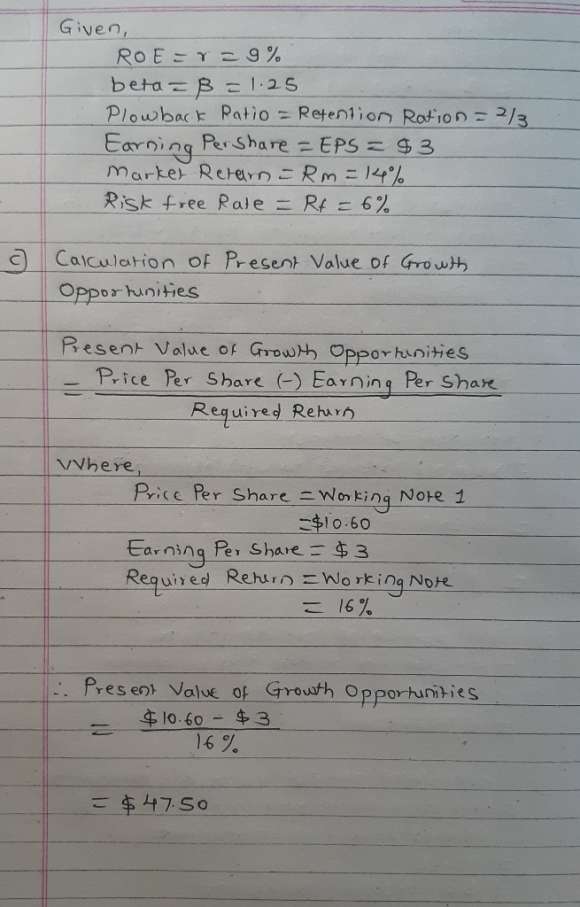 Given,
ROE = r = 9%
beta = β = 1.25
Plowback Ratio = Retention Ration = 2/3
Earning Per share = EPS = $3
Market Return = Rm = 14%
Risk free Rate = Rf = 6%
c) Calculation of Present Value of Growth
Opportunities
Present Value of Growth Opportunities
= Price Per Share (-) Earning Per Share
Required Return
Where,
Price Per Share = Working Note 1
=$10.60
Earning Per Share = $3
Required Return = Working Note
= 16%
∴ Present Value of Growth Opportunities
= $10.60 - $3
16%
= $47.50